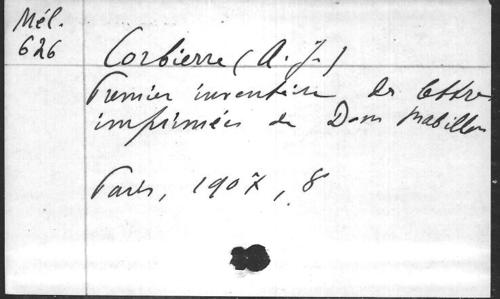 Mél.
626
Corbierre (A. J.)
Premier inventaire des lettres
imprimées de Dom Mabillon
Paris, 1907, 8°